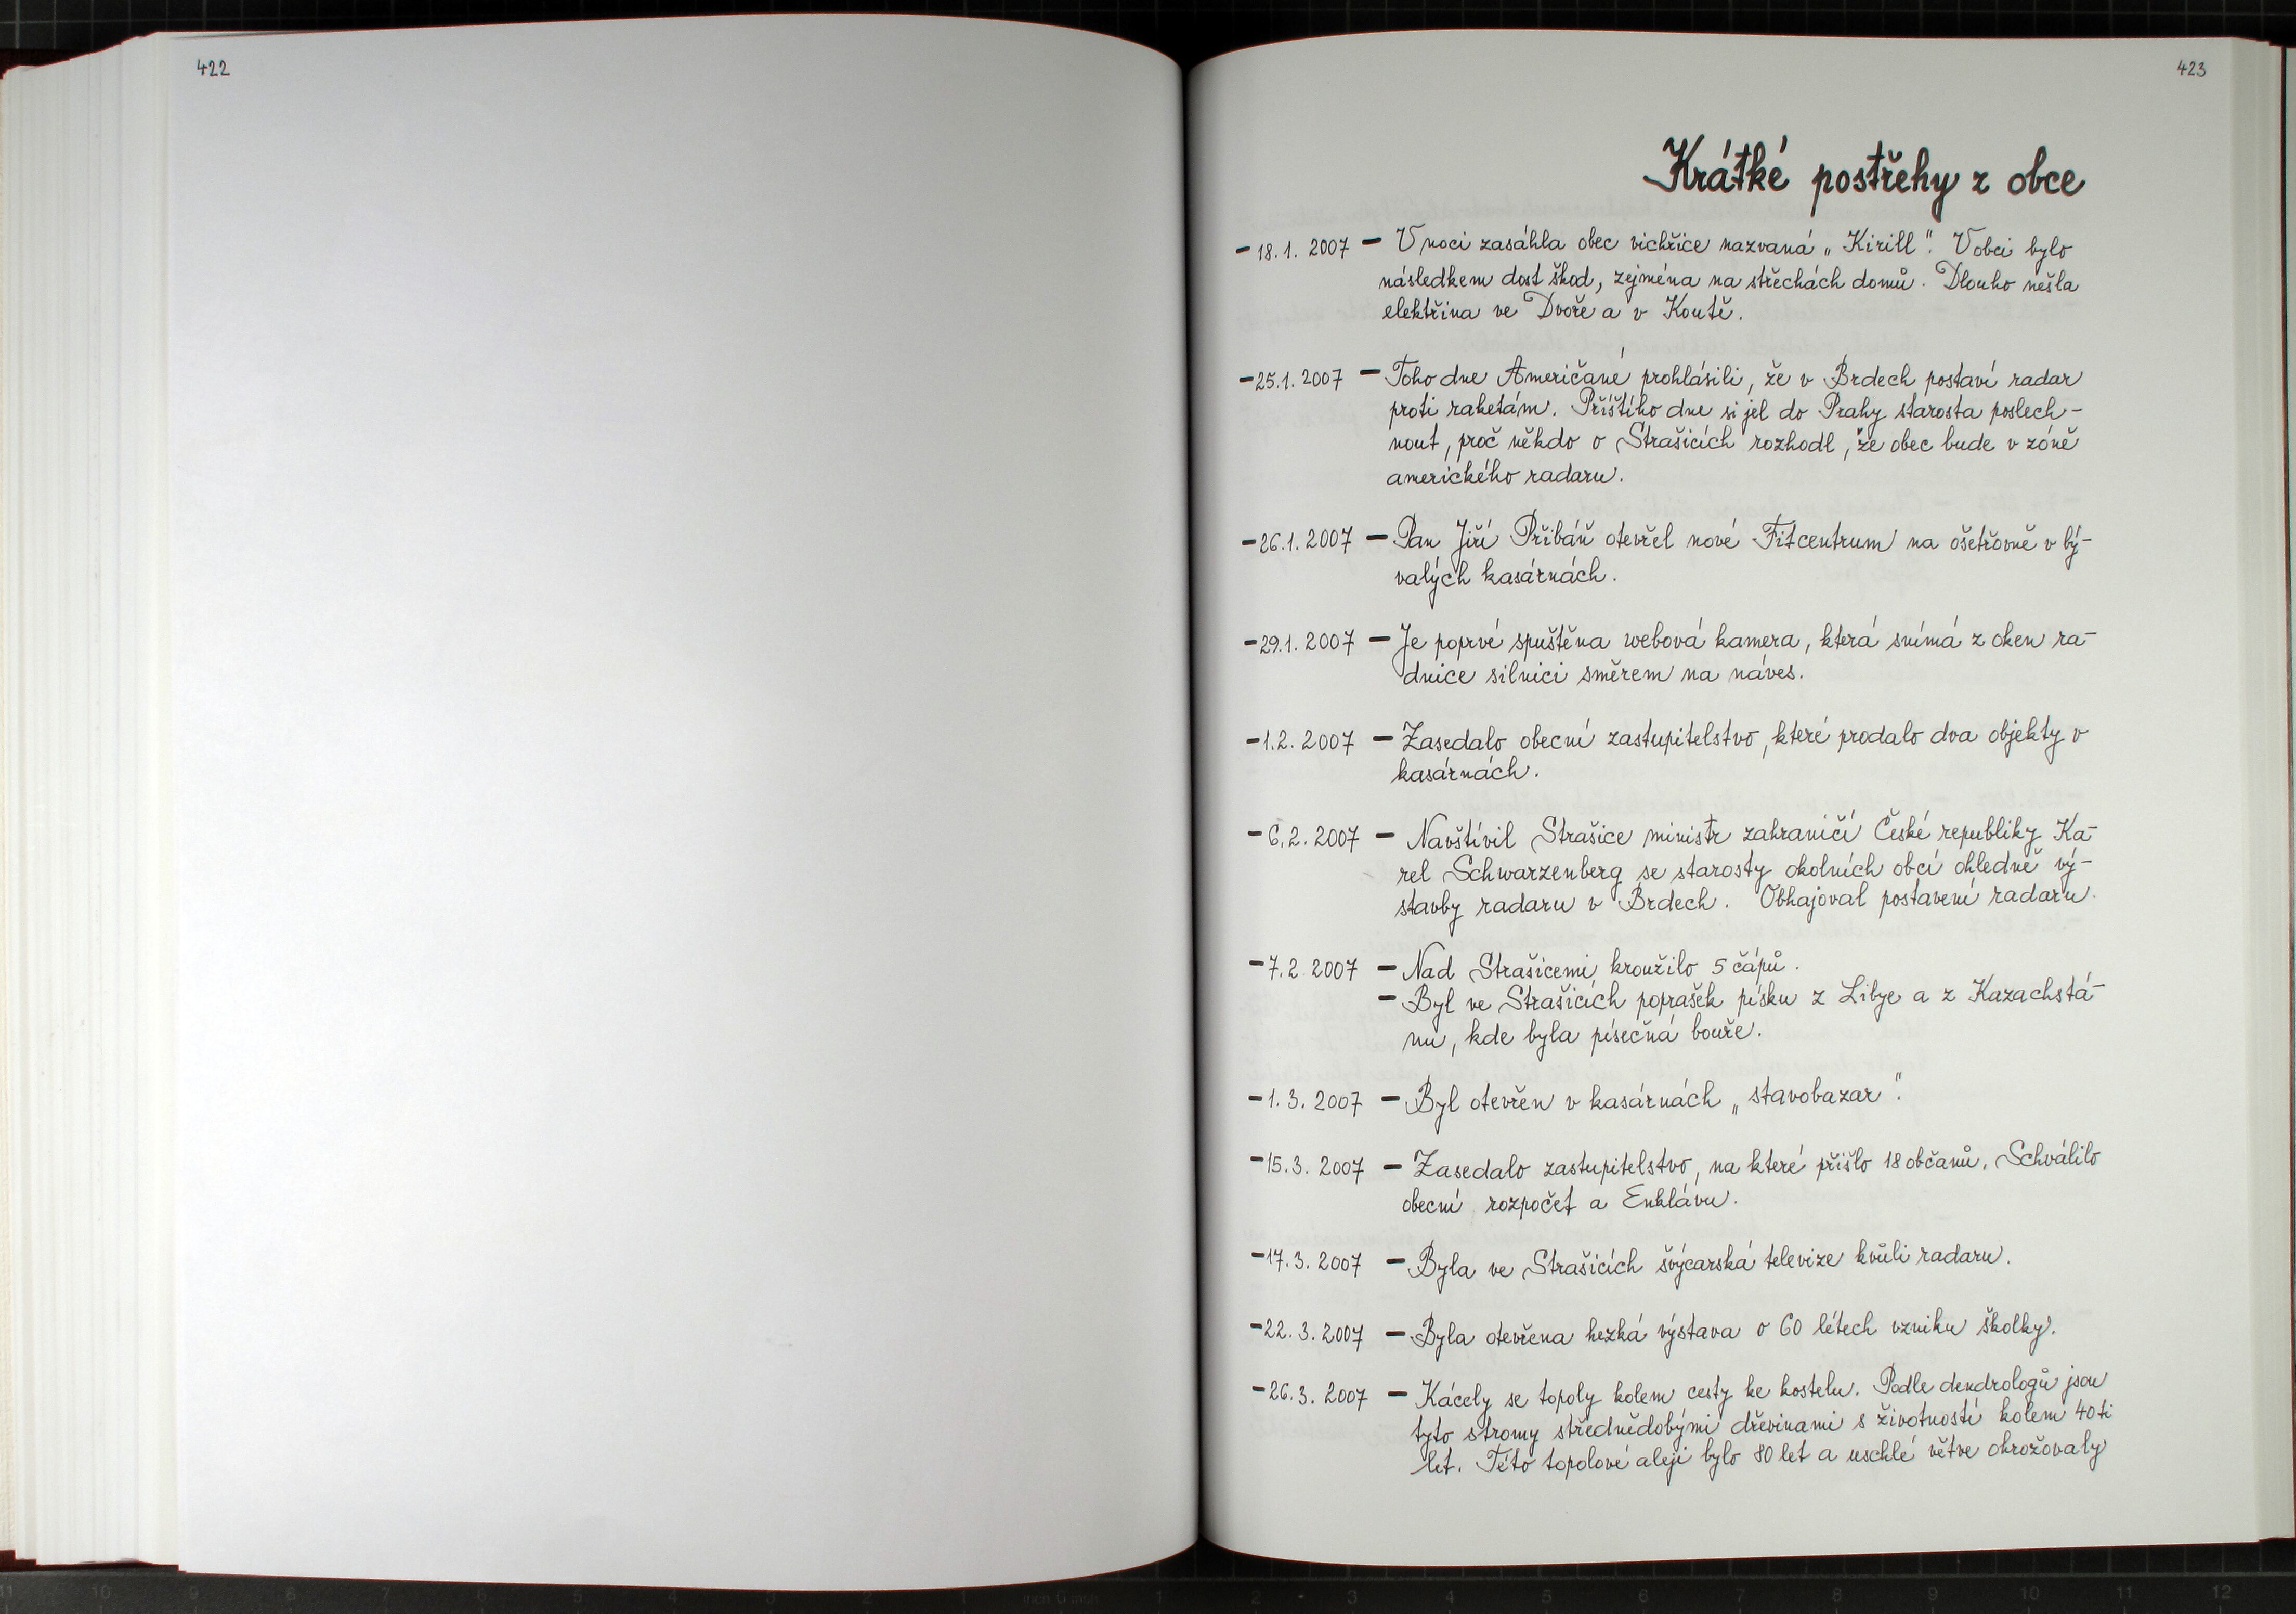 422
423
Krátké postřehy z obce
- 18.1. 2007 - V noci zasáhla obec vichřice nazvaná „Kirill". V obci bylo
následkem dost škod, zejména na střechách domů. Dlouho nešla
elektřina ve Dvoře a v Koutě.
- 25.1. 2007 - Toho dne Američané prohlásili, že v Brdech postaví radar
proti raketám. Příštího dne si jel do Prahy starosta poslech-
nout, proč někdo o Strašicích rozhodl, že obec bude v zóně
amerického radaru.
- 26.1. 2007 - Pan Jiří Přibáň otevřel nové Fitcentrum na ošetřovně v bý-
valých kasárnách.
- 29.1. 2007 - Je poprvé spuštěna webová kamera, která snímá z oken ra-
dnice silnici směrem na náves.
- 1.2. 2007 - Zasedalo obecní zastupitelstvo, které prodalo dva objekty v
kasárnách.
- 6.2. 2007 - Navštívil Strašice ministr zahraničí České republiky Ka-
rel Schwarzenberg se starosty okolních obcí ohledně vý-
stavby radaru v Brdech. Obhajoval postavení radaru.
- 7.2. 2007 - Nad Strašicemi kroužilo 5 čápů.
- Byl ve Strašicích poprašek písku z Libye a z Kazachstá-
nu, kde byla písečná bouře.
- 1. 3. 2007 - Byl otevřen v kasárnách „stavobazar".
- 15. 3. 2007 - Zasedalo zastupitelstvo, na které přišlo 18 občanů. Schválilo
obecní rozpočet a Enklávu.
- 17. 3. 2007 - Byla ve Strašicích švýcarská televize kvůli radaru.
- 22. 3. 2007 - Byla otevřena hezká výstava o 60 létech vzniku školky.
- 26. 3. 2007 - Kácely se topoly kolem cesty ke kostelu. Podle dendrologů jsou
tyto stromy střednědobými dřevinami s životností kolem 40ti
let. Této topolové aleji bylo 80 let a uschlé větve ohrožovaly
11 10 9 8 7 6 5 4 3 2 1 inch 0 inch 1 2 3 4 5 6 7 8 9 10 11 12